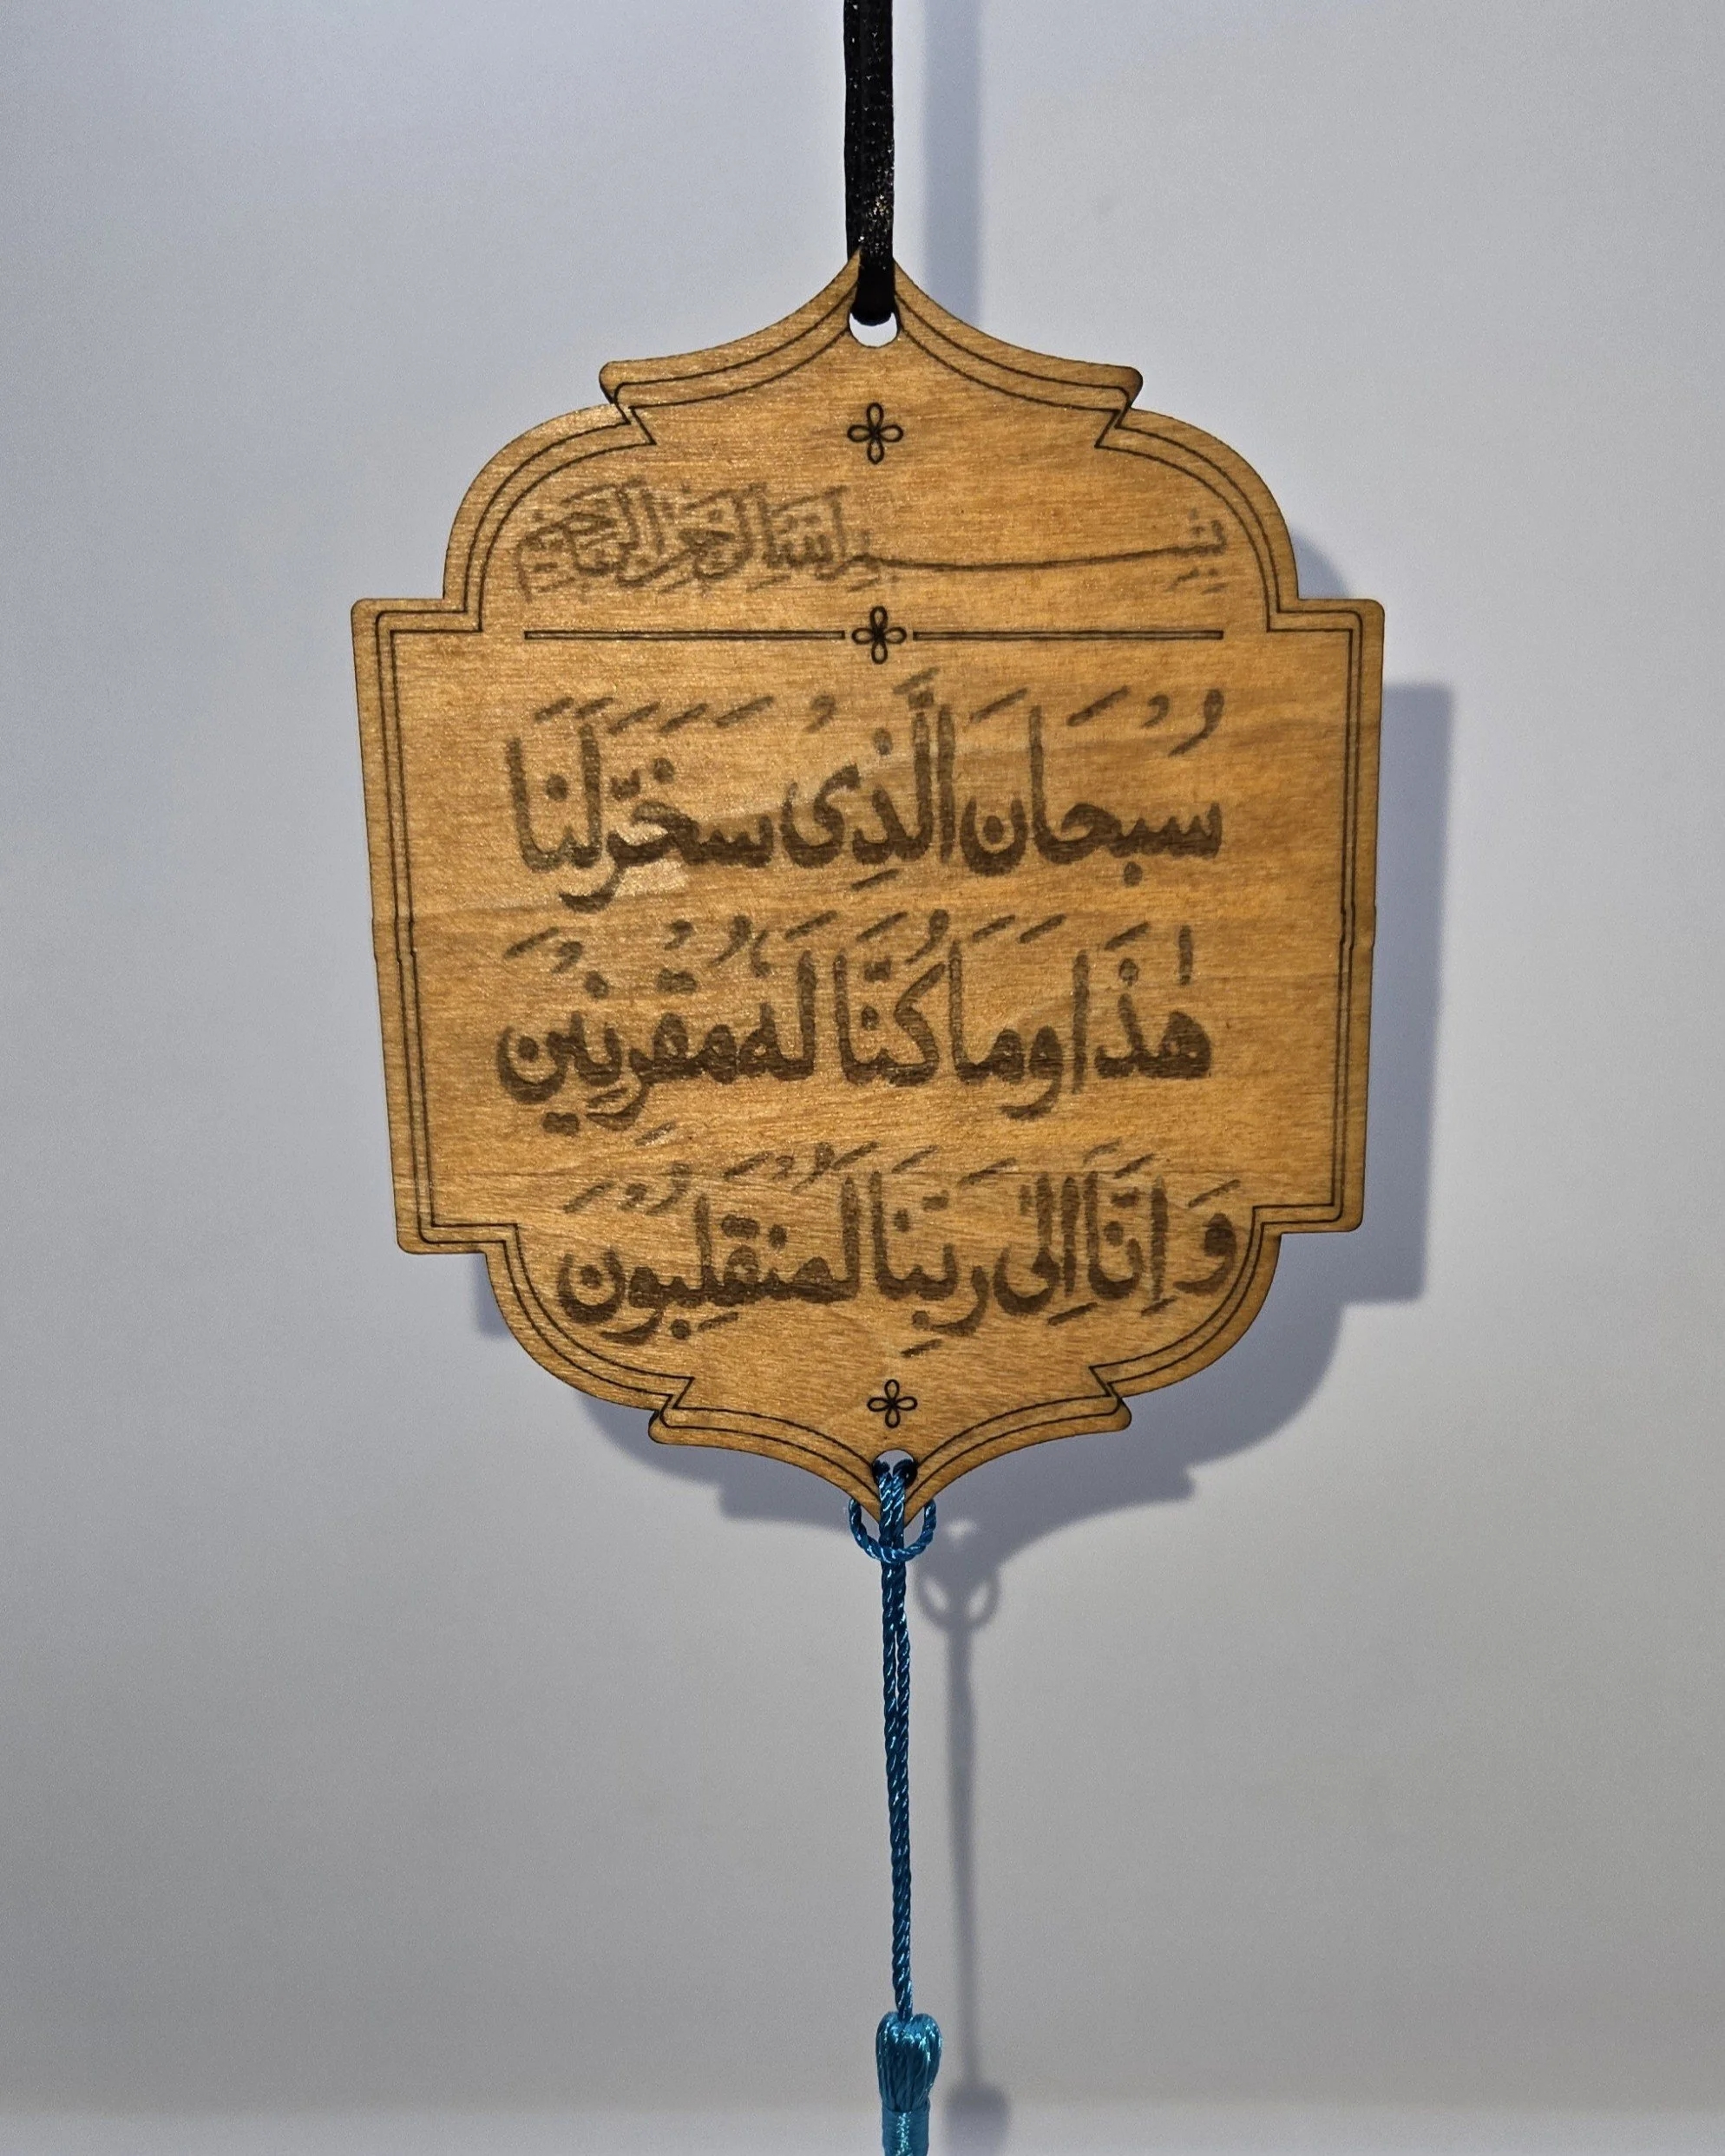 بِسْمِ اللهِ الرَّحْمٰنِ الرَّحِيْمِ
سُبْحَانَ الَّذِیْ سَخَّرَ لَنَا
هٰذَا وَمَا كُنَّا لَهٗ مُقْرِنِيْنَ
وَ اِنَّا اِلٰى رَبِّنَا لَمُنْقَلِبُوْنَ